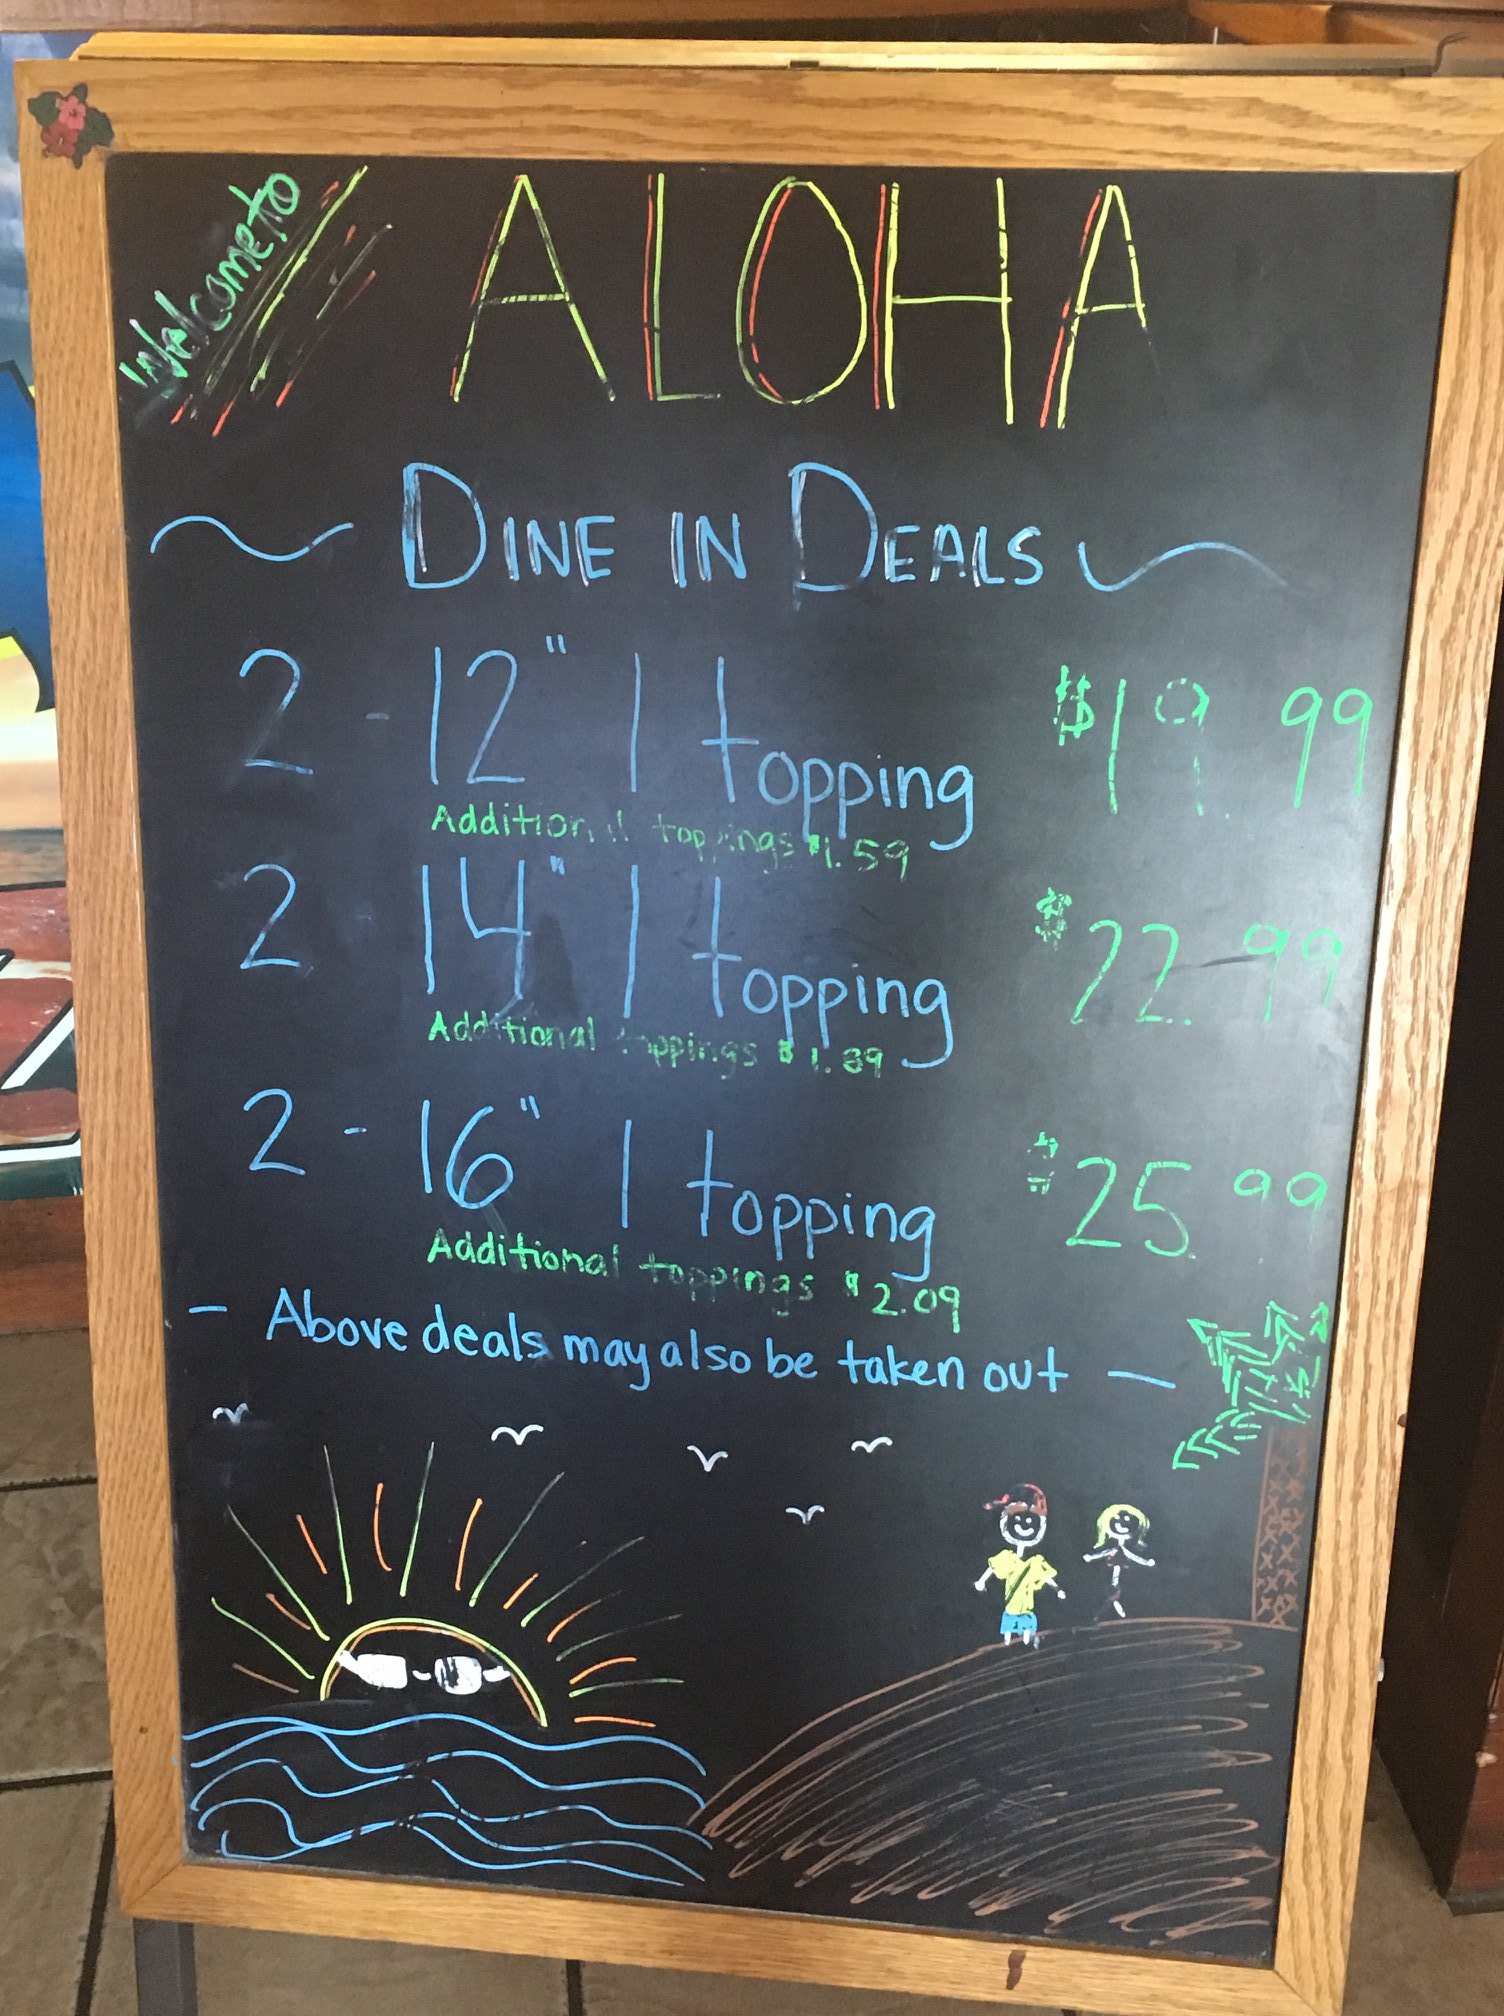 Welcome to
ALOHA
~ DINE IN DEALS ~
2 - 12" 1 topping $19.99
Additional toppings $1.59
2 14" 1 topping $22.99
Additional toppings $1.89
2 - 16" 1 topping $25.99
Additional toppings $2.09
- Above deals may also be taken out -